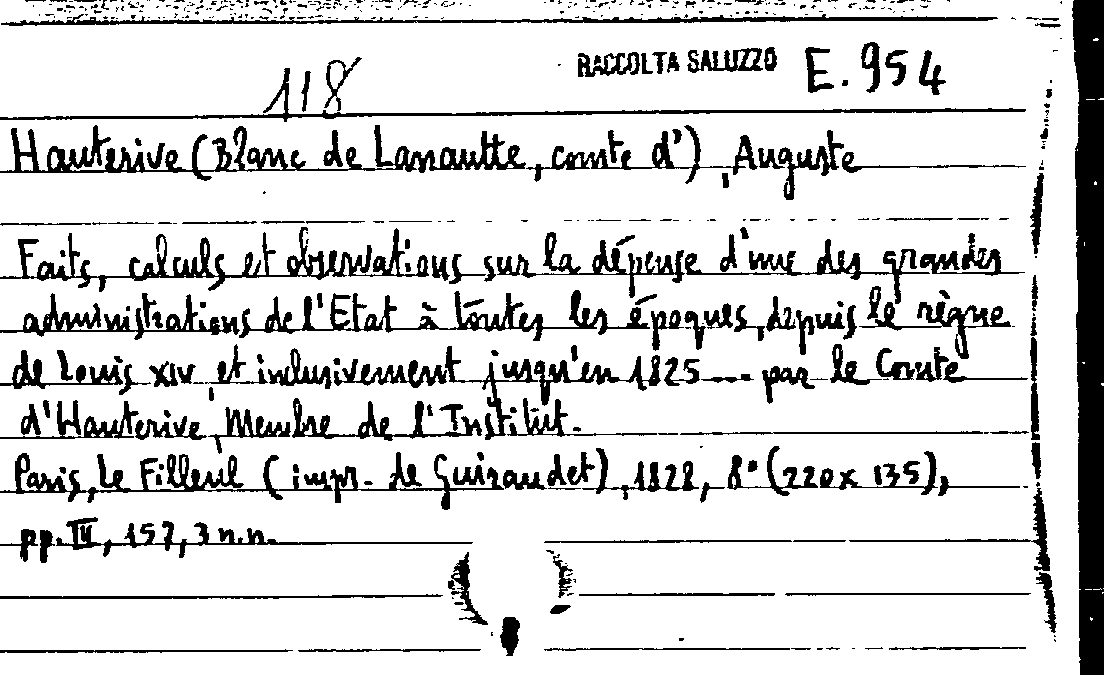 118
RACCOLTA SALUZZO E.954
Hauterive (Blanc de Lanautte, comte d'), Auguste
Faits, calculs et observations sur la dépense d'une des grandes
administrations de l'Etat à toutes les époques, depuis le règne
de Louis XIV, et inclusivement jusqu'en 1825 --- par le Comte
d'Hauterive, Membre de l'Institut.
Paris, Le Filleul (impr. de Guiraudet), 1828, 8° (220x135),
pp. III, 157, 3 n.n.